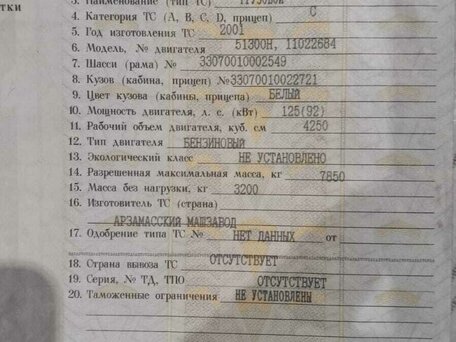 тки
3. Наименование (тип ТС)
4. Категория ТС (А, В, С, D, прицеп) С
5. Год изготовления ТС 2001
6. Модель, № двигателя 51300Н, 11022684
7. Шасси (рама) № 33070010002549
8. Кузов (кабина, прицеп) №33070010022721
9. Цвет кузова (кабины, прицепа) БЕЛЫЙ
10. Мощность двигателя, л. с. (кВт) 125(92)
11. Рабочий объем двигателя, куб. см 4250
12. Тип двигателя БЕНЗИНОВЫЙ
13. Экологический класс НЕ УСТАНОВЛЕНО
14. Разрешенная максимальная масса, кг 7850
15. Масса без нагрузки, кг 3200
16. Изготовитель ТС (страна)
АРЗАМАССКИЙ МАШЗАВОД
17. Одобрение типа ТС № НЕТ ДАННЫХ от
18. Страна вывоза ТС ОТСУТСТВУЕТ
19. Серия, № ТД, ТПО ОТСУТСТВУЕТ
20. Таможенные ограничения НЕ УСТАНОВЛЕНЫ